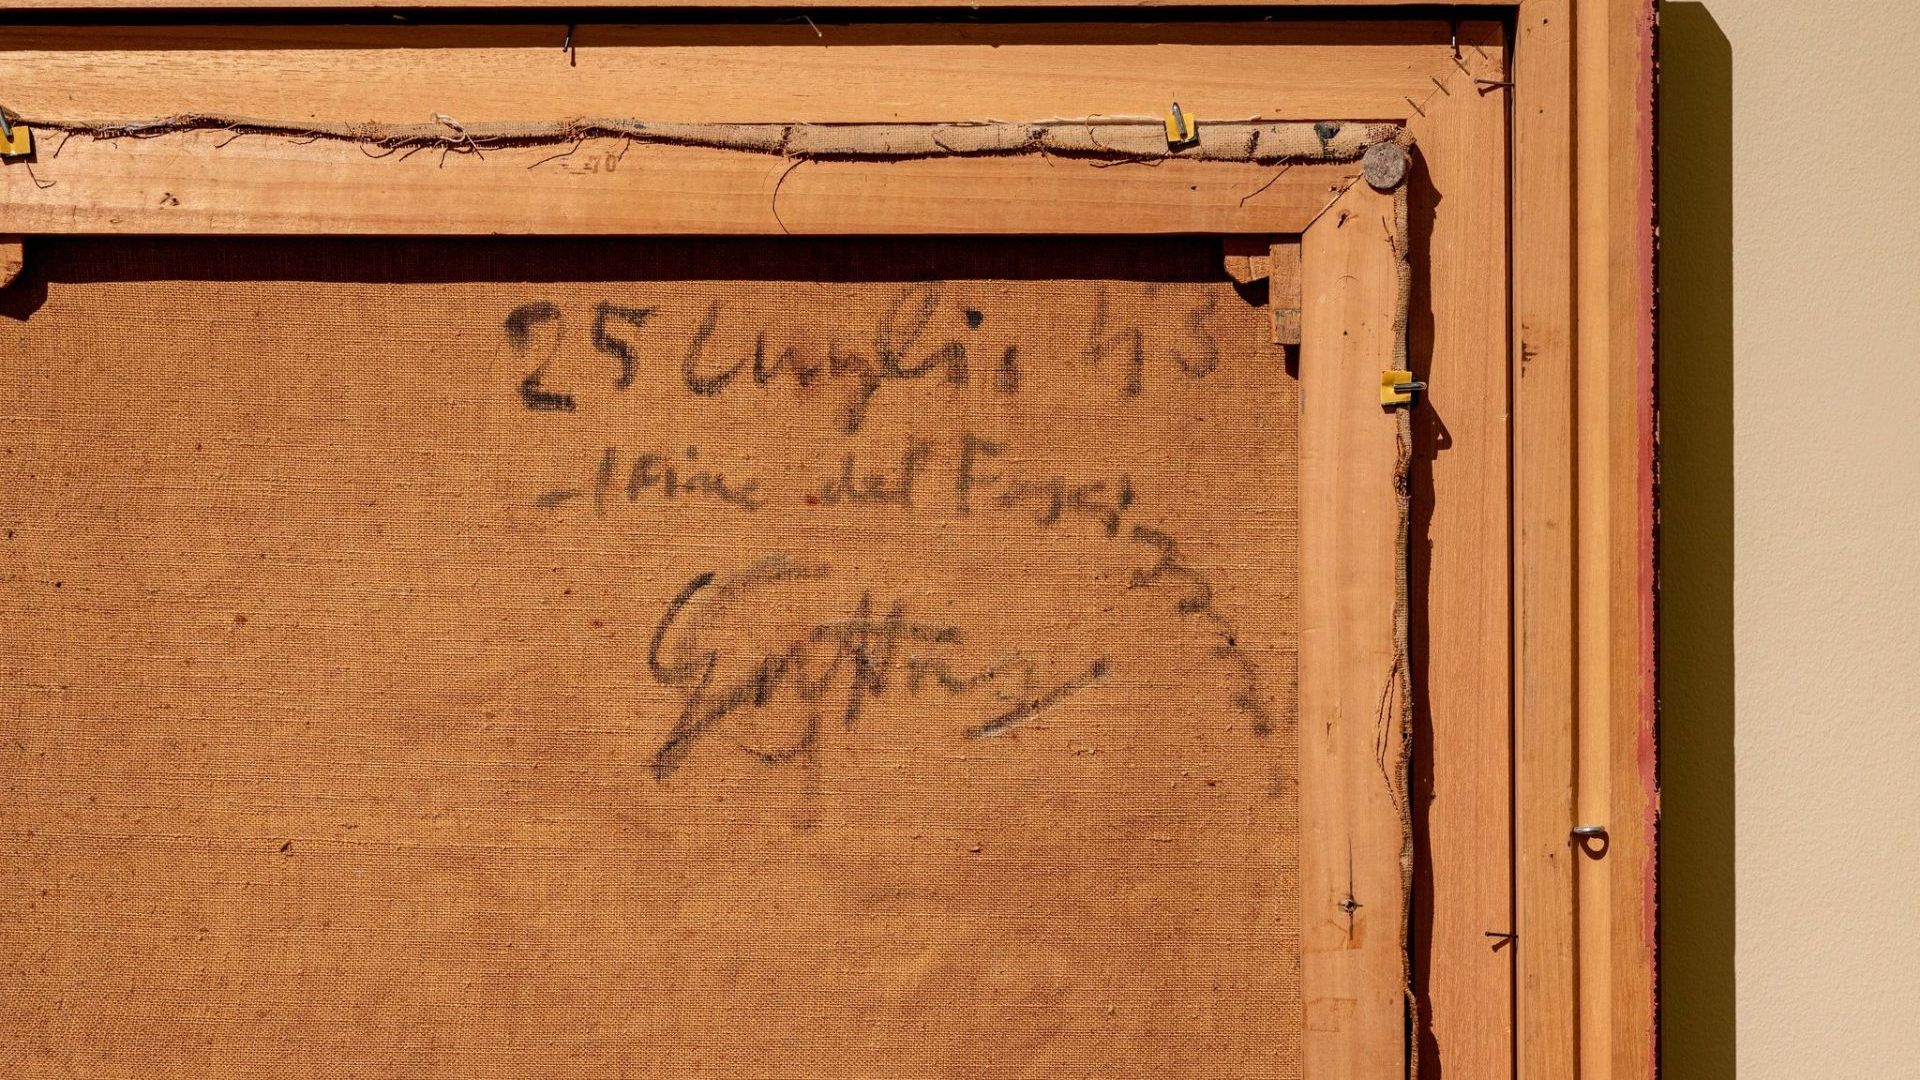 70
25 Luglio 43
- fine del Fascismo
Guttuso